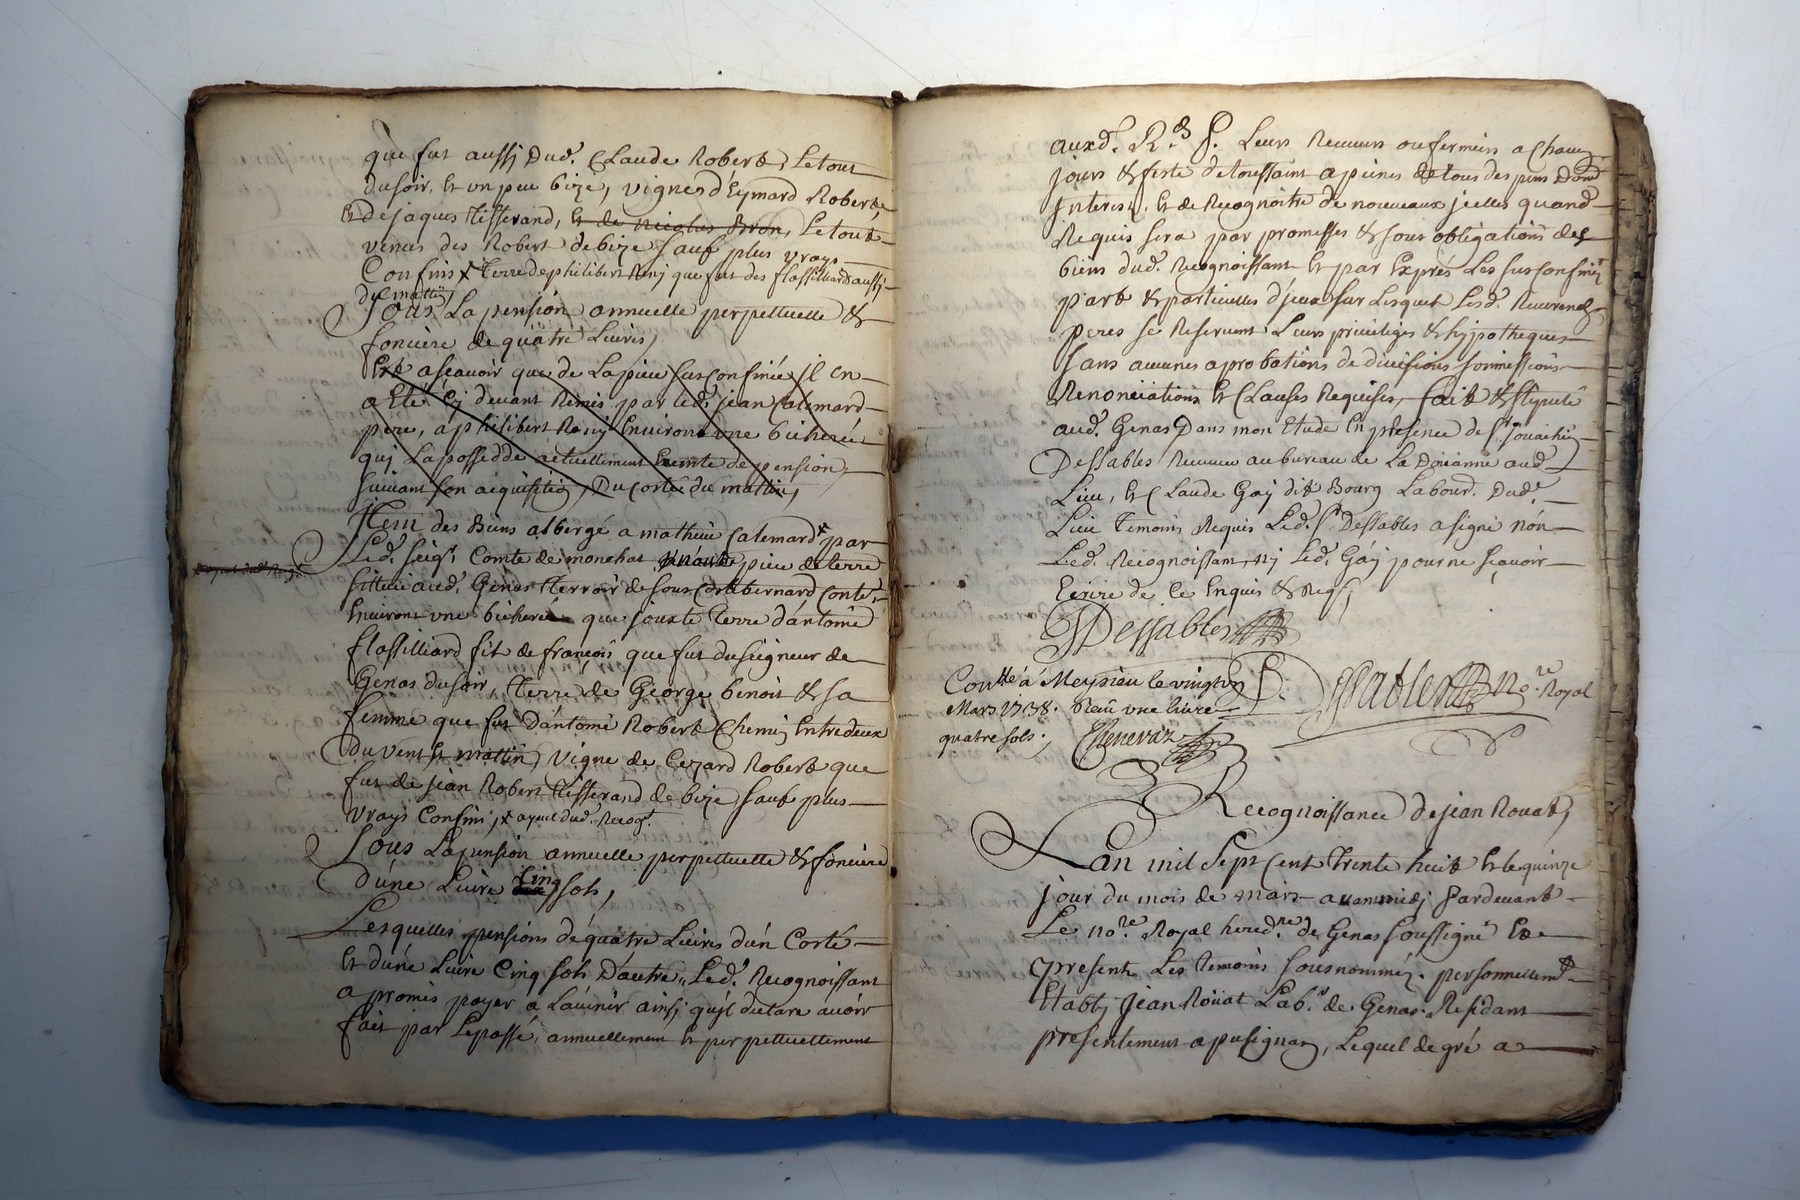 que fut aussj dud.t Claude Robert, Le tout
du soir, et un peu bize, vignes d'Eymard Robert,
et de jaques tisserand, et de Nicolas Bron, Le tout
venus des Robert de bize sauf plus vrays
Confins x terre de philibert Remj que fut des flassilliard aussj
du mattin,
Sous La pension annuelle perpettuelle &
fonciere de quatre Livres,
Et a sçauoir que de La piece sus confinée jl en
a Eté Cj deuant Remis par led.t jean Calemard
pere, a philibert Remj Enuiron une bicherée
quj La possedde actuellement Exemte de pension
suiuant son acquisition, Du Corté du mattin,
Jtem des Biens albergé a mathieu Calemard x par
Led.t seig.r Comte de monchat piece de terre
sittuée aud.t Genas terroir de sous Coste bernard Conte.t
Enuiron une bicherée que jouxte terre d'antome
flassilliard fils de françois que fut du seigneur de
Genas du soir, terre de George benoit & sa
femme que fut d'antome Robert Chemin Entredeux
du vent et mattin, vigne de Cezard Robert que
fut de jean Robert tisserand de bize, sauf plus
vrays Confins, x ayeul dud.t Recog.t
Sous La pension annuelle perpettuelle & fonciere
d'une Livre Cinq sols,
Lesquelles pensions de quatre Livres d'un Corté
et d'une Livre Cinq sols d'autre, Led.t Recognoissant
a promis payer a L'auenir ainsj qu'jl declare auoir
fait par Le passé, annuellement et perpettuellement
auxd.t R.ds P. Leurs Receueurs ou fermiers a Chaun
jours & feste de toussaint a peines de tous despens dom
Jnterest, et de Recognoitre de nouueaux jcelles quand
Requis sera par promesses & sous obligations des
biens dud.t Recognoissant et par Exprés Les susconfinés
part & particulles d'jceux sur Lesquels Lesd.t Reuerends
peres se Reseruent Leurs priuileges & hypotheques
sans aucunes aprobations de diuisions soumissions
Renonciations et Clauses Requises, fait & stipulé
aud.t Genas Dans mon Etude En presence de s.r jouachin
Dessables Receueur au bureau de La Doüanne aud.t
Lieu, et Claude Gaj dit Bourg Labour.r Dud.t
Lieu Temoins Requis Led.t s.r Dessables a signé non
Led.t Recognoissant, nj Led.t Gaj pour ne sçauoir
Ecrire de ce Enquis & Req.s
Dessables
Con.llé a Meyzieu le vingt
Mars 1738. Reçu une livre
quatre sols.
Chenevaz
Dessables No.re Royal
Recognoissance de jean Rouat,
L'an mil sept Cent trente huit et le quinze
jour du mois de mars auant midj Pardeuant
Le no.re Royal hered.re de Genas soussigné Et
presents Les temoins sous nommés. personnellem.t
Etablj jean Roüat Lab.r de Genas. Residant
presentement a pusignan, Lequel de gré a